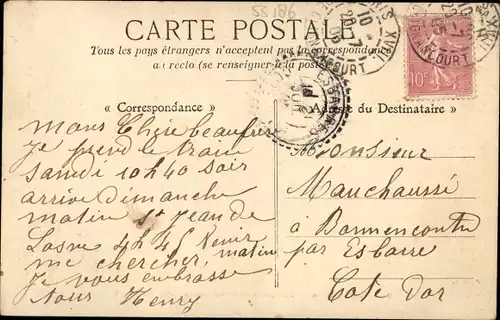 SS 186
CARTE POSTALE
Tous les pays étrangers n'acceptent pas la correspondance
au recto (se renseigner à la poste)
PARIS XVII
LEGENDRE
10
28 7
05
10c
« Correspondance »
« Adresse du Destinataire »
Mons Cher beaufrère
Je prend le train
samdi 10h40 soir
arrive Dimanche
matin St Jean de
Losne 4h45 Venir
me chercher, matin
Je vous embrasse
tous Henry
Monsieur
Mauchaussé
à Bonnencontre
par Esbarre
Cote Dor